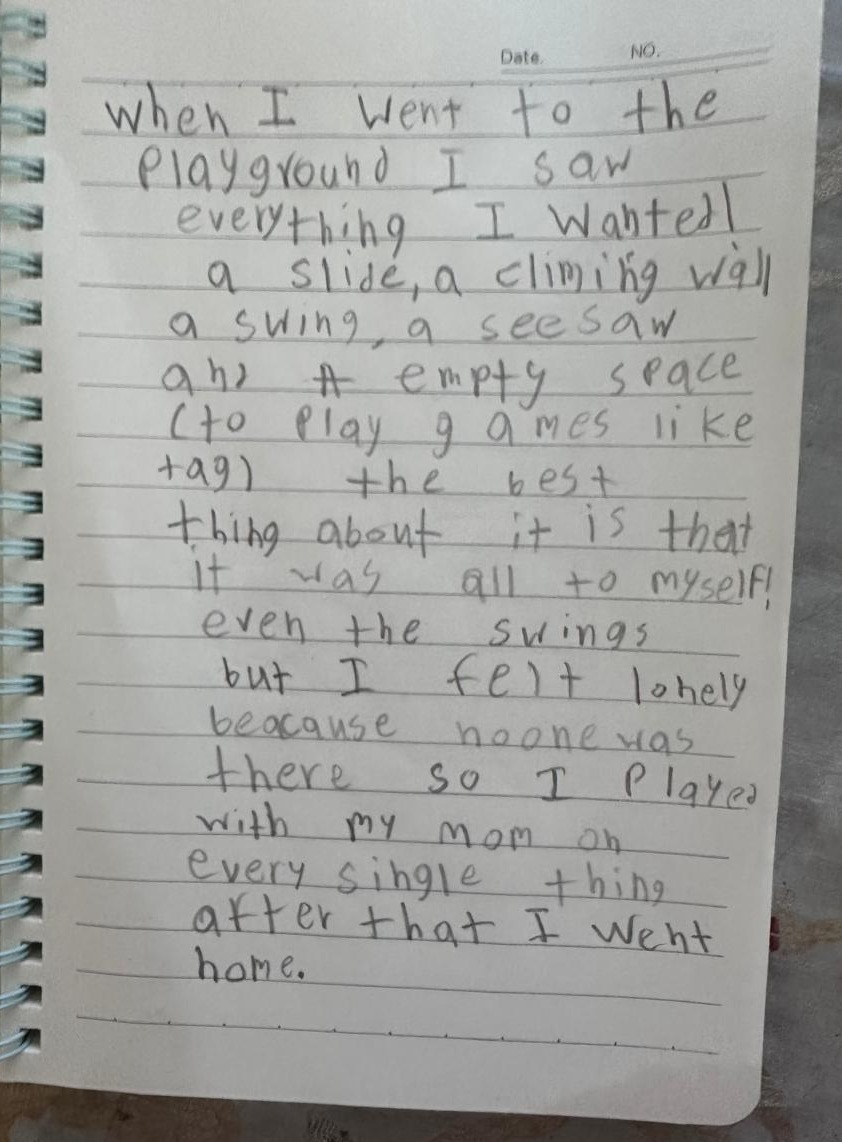 Date. NO.
when I went to the
playground I saw
everything I wanted!
a sliDe, a climing wall
a swing, a see saw
and A empty space
(to play games like
tag) the best
thing about it is that
it was all to myself!
even the swings
but I felt lonely
beacause no one was
there so I played
with my mom on
every single thing
after that I went
home.